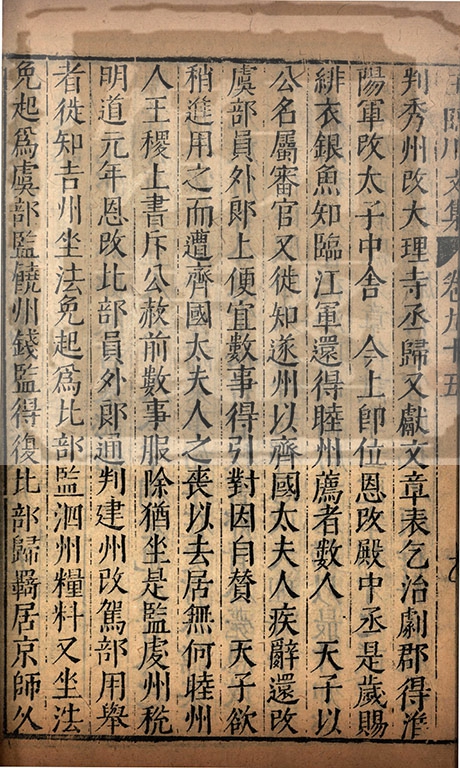 王臨川文集 卷九十五
判秀州改大理寺丞歸又獻文章表乞治劇郡得淮
陽軍改太子中舍 今上卽位恩改殿中丞是歲賜
緋衣銀魚知臨江軍還得睦州薦者數人 天子以
公名屬審官又徙知遂州以齊國太夫人疾辭還改
虞部員外郞上便宜數事得引對因自贊 天子欲
稍進用之而遭齊國太夫人之喪以去居無何睦州
人王稷上書斥公赦前數事服除猶坐是監䖍州稅
明道元年恩改比部員外郞通判建州改駕部用舉
者徙知吉州坐法免起爲比部監泗州糧料又坐法
免起爲虞部監饒州錢監得復比部歸羇居京師久